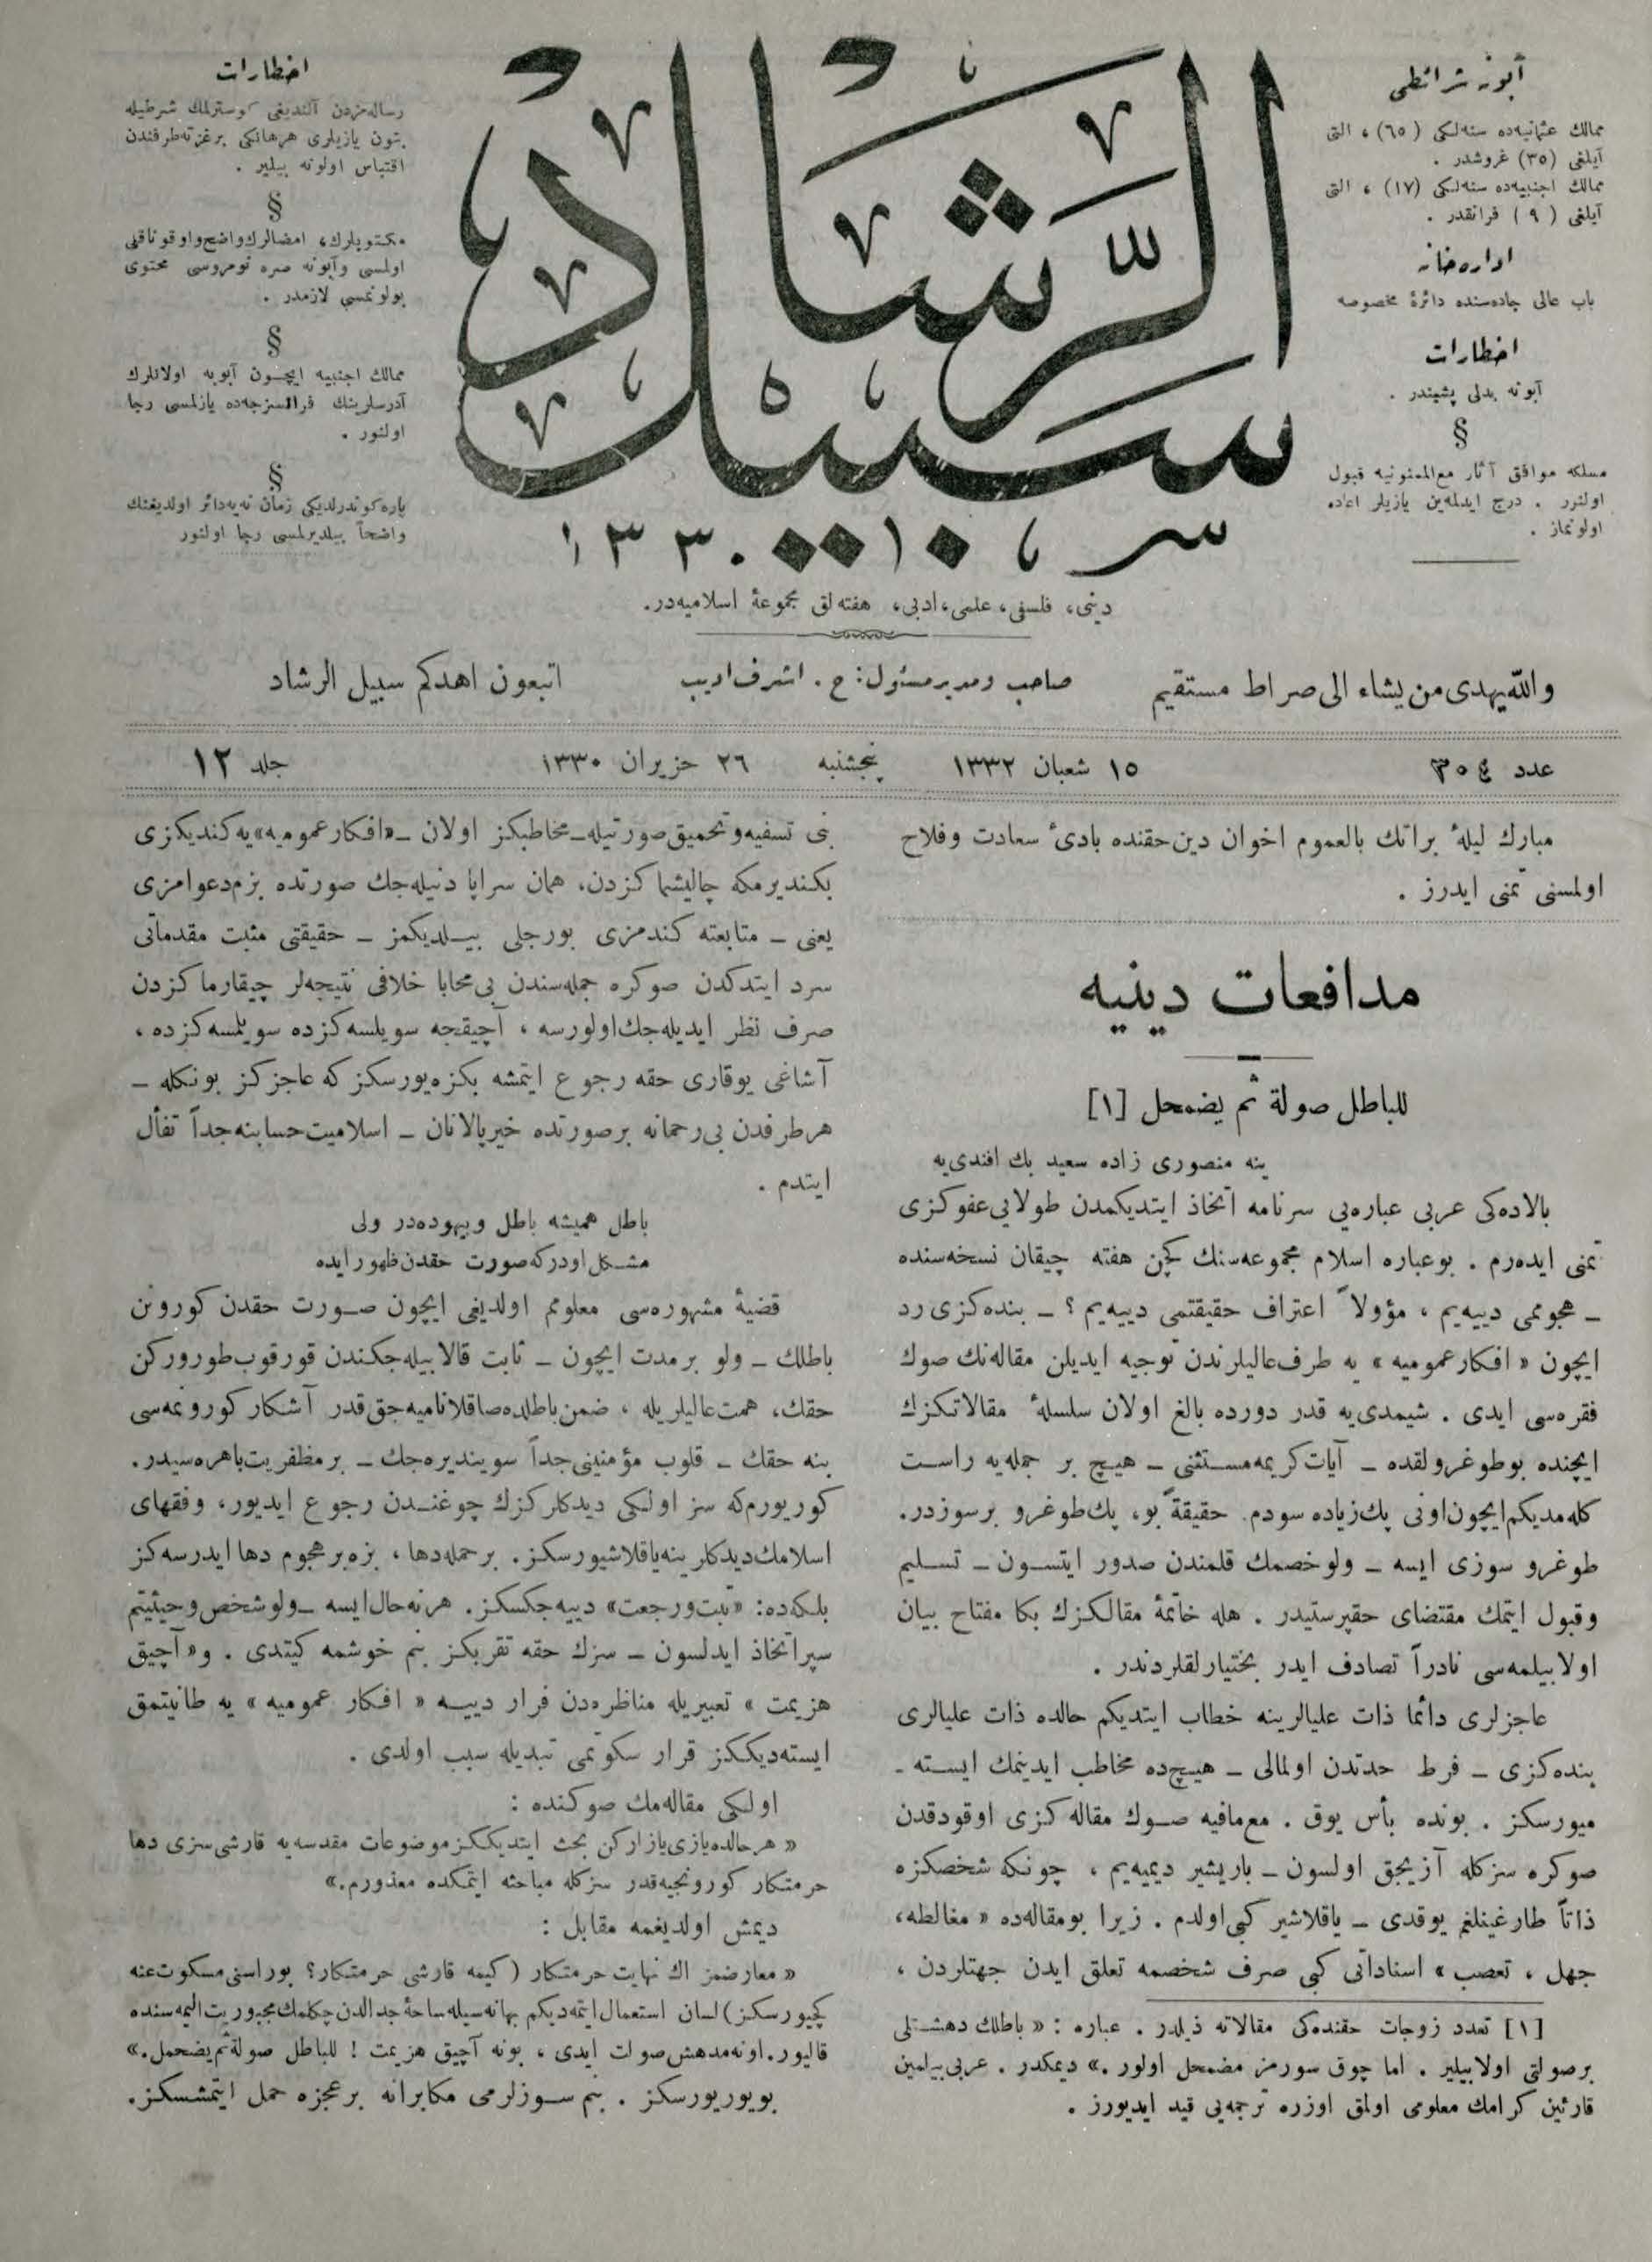 آبونه شرائطی
ممالك عثمانیه‌ده سنه‌لكی (٦٥) ، التی
آیلغی (٣٥) غروشدر .
ممالك اجنبیه‌ده سنه‌لكی (١٧) ، التی
آیلغی ( ٩ ) فرانقدر .
اداره‌خانه
باب عالی جاده‌سنده دائرهٔ مخصوصه
اخطارات
آبونه بدلی پشیندر .
§
مسلكه موافق آثار مع‌الممنونیه قبول
اولنور . درج ایدلمه‌ین یازیلر اعاده
اولونماز .
سبیل الرّشاد
١٣٣٠
اخطارات
رساله‌مزدن آلندیغی كوسترلمك شرطیله
بتون یازیلری هرهانكی برغزته‌طرفندن
اقتباس اولونه بیلیر .
§
مكتوبلرك، امضالرك‌واضح‌واوقوناقلی
اولمسی وآبونه صره نومروسی محتوی
بولونمسی لازمدر .
§
ممالك اجنبیه ایچـون آبونه اولانلرك
آدرسلرینك فرانسزجه‌ده یازلمسی رجا
اولنور .
§
پاره‌كوندرلدیكی زمان نه‌یه‌دائر اولدیغنك
واضحاً بیلدیرلمسی رجا اولنور
دینی، فلسفی، علمی، ادبی، هفته‌لق مجموعهٔ اسلامیه‌در.
والله‌یهدی من یشاء الی صراط مستقیم
صاحب ومدیر مسئول: ح . اشرف ادیب
اتبعون اهدكم سبیل الرشاد
عدد ٣٠٤
١٥ شعبان ١٣٣٢
پنجشنبه
٢٦ حزیران ١٣٣٠
جلد ١٢
مبارك لیلهٔ براتك بالعموم اخوان دین‌حقنده بادئ سعادت وفلاح
اولمسنی تمنی ایدرز .
مدافعات دینیه
للباطل صولة ثم یضمحل [١]
ینه منصوری زاده سعید بك افندی‌یه
بالاده‌كی عربی عباره‌یی سرنامه اتخاذ ایتدیكمدن طولایی‌عفوكزی
تمنی ایده‌رم . بوعباره اسلام مجموعه‌سنك كچن هفته چیقان نسخه‌سنده
ـ هجوممی دییه‌یم ، مؤولاً اعتراف حقیقتمی دییه‌یم ؟ ـ بنده‌كزی رد
ایچون « افكارعمومیه » یه طرف‌عالیلرندن توجیه ایدیلن مقاله‌نك صوك
فقره‌سی ایدی . شیمدی‌یه قدر دورده بالغ اولان سلسلهٔ مقالاتكزك
ایچنده بوطوغرولقده ـ آیات‌كریمه‌مسـتثنی ـ هیـچ بر جمله‌یه راسـت
كله‌مدیكم‌ایچون‌اونی پك‌زیاده سودم. حقیقةً بو، پك‌طوغرو برسوزدر.
طوغرو سوزی ایسه ـ ولوخصمك قلمندن صدور ایتسـون ـ تسـلیم
وقبول ایتمك مقتضای حقپرستیدر . هله خاتمهٔ مقالكزك بكا مفتاح بیان
اولا بیلمه‌سی نادراً تصادف ایدر بختیارلقلردندر .
عاجزلری دائما ذات علیالرینه خطاب ایتدیكم حالده ذات علیالری
بنده‌كزی ـ فرط حدتدن اولمالی ـ هیـچ‌ده مخاطب ایدینمك ایسـته ـ
میورسكز . بونده بأس یوق . مع‌مافیه صـوك مقاله‌كزی اوقودقدن
صوكره سزكله آزیجق اولسون ـ باریشیر دیمیه‌یم ، چونكه شخصكزه
ذاتاً طارغینلغم یوقدی ـ یاقلاشیر كبی‌اولدم . زیرا بومقاله‌ده « مغالطه،
جهل ، تعصب » اسناداتی كبی صرف شخصمه تعلق ایدن جهتلردن ،
[١] تعدد زوجات حقنده‌كی مقالاته ذیلدر . عباره : « باطلك دهشـتلی
برصولتی اولابیلیر . اما چوق سورمز مضمحل اولور .» دیمكدر . عربی‌بیلمین
قارئین كرامك معلومی اولمق اوزره ترجمه‌یی قید ایدیورز .
بنی تسفیه‌وتحمیق‌صورتیله‌ـ مخاطبكز اولان ـ«افكارعمومیه»یه‌كندیكزی
بكندیرمكه چالیشماكزدن، همان سراپا دنیله‌جك صورتده بزم‌دعوامزی
یعنی ـ متابعته كندمزی بورجلی بیـلدیكمز ـ حقیقتی مثبت مقدماتی
سرد ایتدكدن صوكره جمله‌سندن بی‌محابا خلافی نتیجه‌لر چیقارماكزدن
صرف نظر ایدیله‌جك‌اولورسه ، آچیقجه سویلسه‌كزده سویلمسه‌كزده ،
آشاغی یوقاری حقه رجوع ایتمشه بكزه‌یورسكز كه عاجزكز بونكله ـ
هرطرفدن بی‌رحمانه برصورتده خیرپالانان ـ اسلامیت‌حسابنه‌جداً تفأل
ایتدم .
باطل همیشه باطل وبیهوده‌در ولی
مشـكل اودركه‌صورت حقدن‌ظهور ایده
قضیهٔ مشهوره‌سی معلومم اولدیغی ایچون صـورت حقدن كورونن
باطلك ـ ولو برمدت ایچون ـ ثابت قالابیله‌جكندن قورقوب‌طوروركن
حقك، همت‌عالیلریله ، ضمن‌باطلده‌صاقلانامیه‌جق‌قدر آشكار كورونمه‌سی
ینه حقك ـ قلوب مؤمنینی‌جداً سویندیره‌جك ـ برمظفریت‌باهره‌سیدر.
كوریورم‌كه سز اولكی دیدكلركزك چوغنـدن رجوع ایدیور، وفقهای
اسلامك‌دیدكلرینه‌یاقلاشیورسكز. برحمله‌دها ، بزه‌برهجوم دها ایدرسه‌كز
بلكه‌ده: «تبت‌ورجعت» دییه‌جكسكز. هرنه‌حال‌ایسه ـولوشخص‌وحیثیتم
سپراتخاذ ایدلسون ـ سزك حقه تقربكز بنم خوشمه كیتدی . و«آچیق
هزیمت » تعبیریله مناظره‌دن فرار دییـه « افكار عمومیه » یه طانیتمق
ایسته‌دیككز قرار سكوتمی تبدیله سبب اولدی .
اولـكی مقاله‌مك صوكنده :
« هرحالده‌یازی‌یازاركن بحث ایتدیككزموضوعات مقدسه‌یه قارشی‌سزی دها
حرمتكار كورونجیه‌قدر سزكله مباحثه ایتمكده معذورم.»
دیمش اولدیغمه مقابل :
« معارضمز اك نهایت حرمتكار (كیمه قارشی حرمتكار؟ بوراسنی‌مسكوت‌عنه
كچیورسكز) لسان استعمال‌ایتمه‌دیكم بهانه‌سیله‌ساحهٔ‌جدالدن‌چكلمك‌مجبوریت‌الیمه‌سنده
قالیور.اونه‌مدهش‌صولت ایدی ، بونه آچیق هزیمت ! للباطل صولةثم‌یضمحل.»
بویوریورسكز . بنم سـوزلرمی مكابرانه برعجزه حمل ایتمشـسكز.